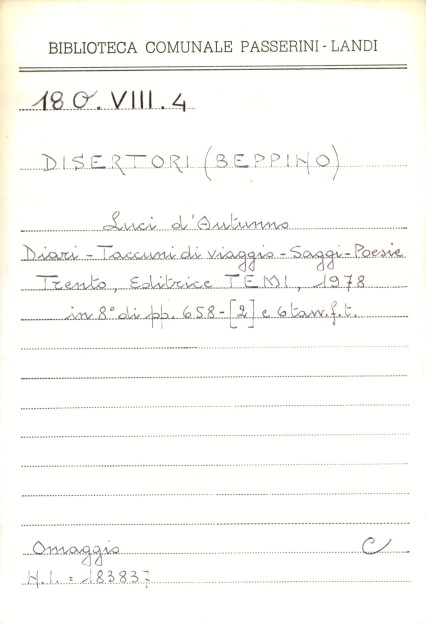 BIBLIOTECA COMUNALE PASSERINI - LANDI
18 O. VIII. 4
DISERTORI (BEPPINO)
Luci d'Autunno
Diari - Taccuini di viaggio - Saggi - Poesie
Trento, Editrice TEMI, 1978
in 8° di pp. 658-[2] e 6 tav. f. t.
Omaggio C
N.I. = 183837